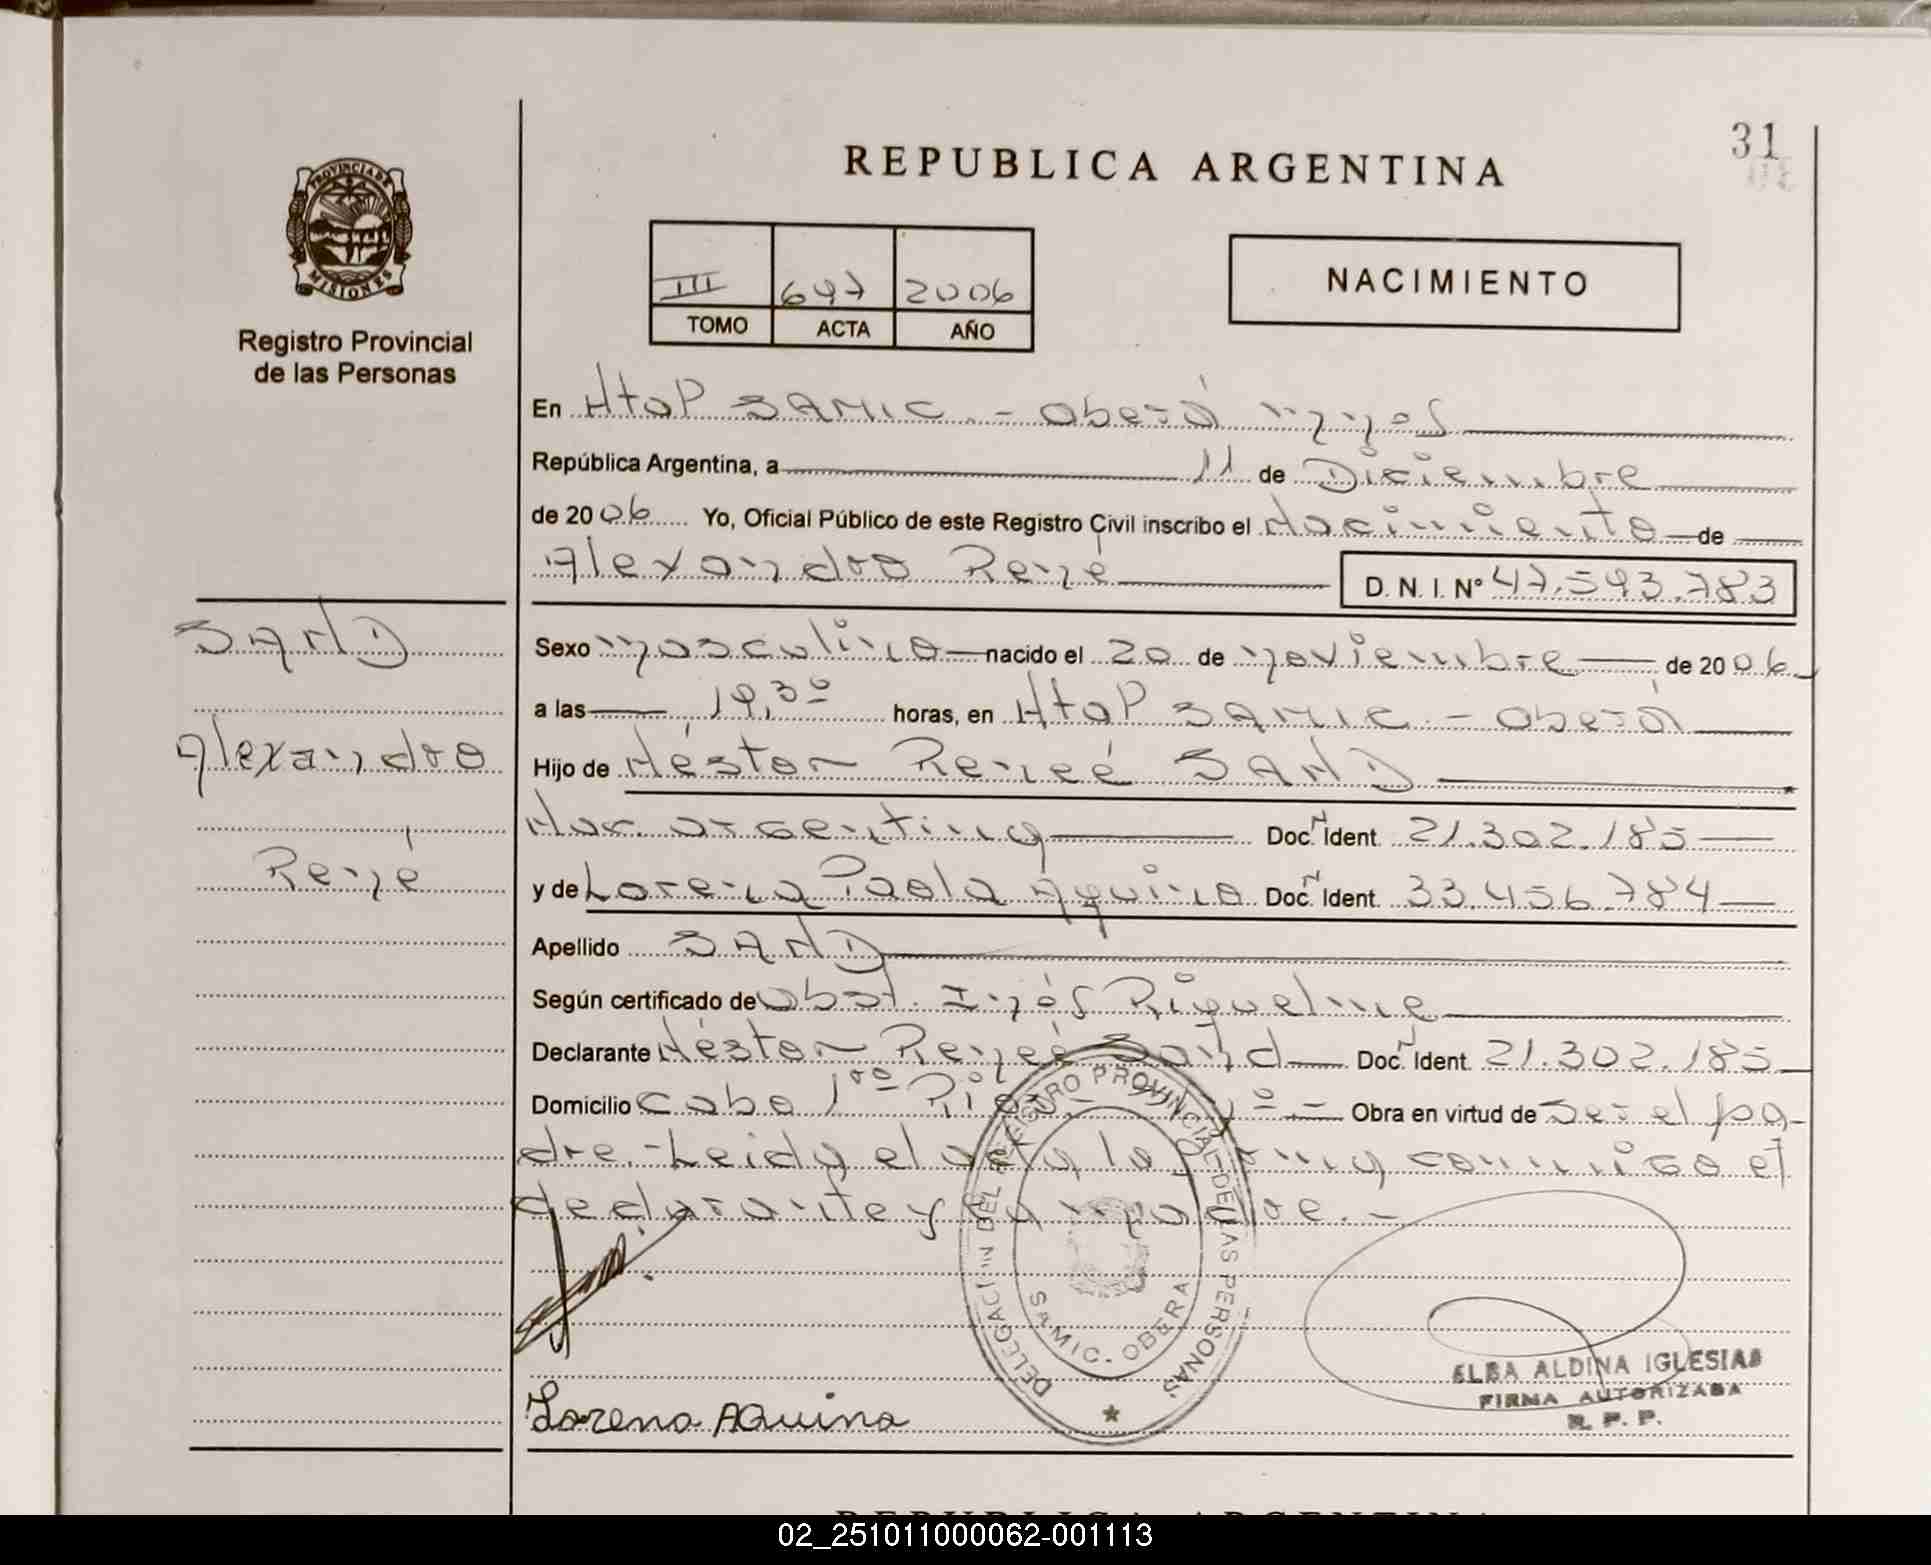 31
REPUBLICA ARGENTINA
PROVINCIA DE MISIONES
Registro Provincial
de las Personas
III 697 2006
TOMO ACTA AÑO
NACIMIENTO
En Htal SAMIC - Oberá Mnes
República Argentina, a 11 de Diciembre
de 2006 Yo, Oficial Público de este Registro Civil inscribo el Nacimiento de
Alexandro René D. N. I. Nº 47.593.783
SAND
Alexandro
René
Sexo Masculino nacido el 20 de Noviembre de 2006
a las 19,30 horas, en Htal SAMIC - Oberá
Hijo de Néstor Reneé SAND
Nac. argentina Doc. Ident. 21.302.185
y de Lorena Paola Aquino Doc. Ident. 33.456.784
Apellido SAND
Según certificado de Obst. Inés Riquelme
Declarante Néstor Reneé Sand Doc. Ident. 21.302.185
Domicilio Cabo 1ro Obra en virtud de ser el pa-
dre.- Leida el acta la firma conmigo el
declarante y la madre.-
DELEGACION DEL REGISTRO PROVINCIAL DE LAS PERSONAS
SAMIC - OBERA
Lorena Aquino
ELBA ALDINA IGLESIAS
FIRMA AUTORIZADA
R. P. P.
REPUBLICA ARGENTINA
02_251011000062-001113